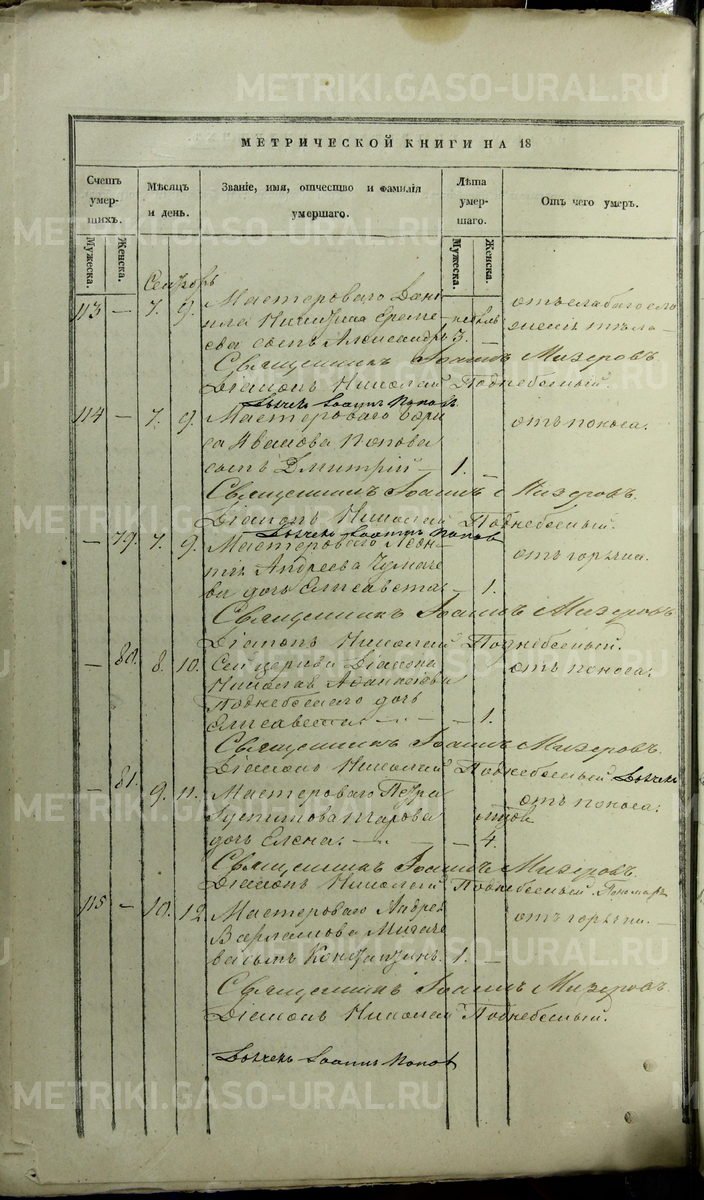 METRIKI.GASO-URAL.RU
МЕТРИЧЕСКОЙ КНИГИ НА 18
Счетъ умершихъ.
Мѣсяцъ и день.
Званіе, имя, отчество и фамилія умершаго.
Лѣта умершаго.
Отъ чего умеръ.
Мужеска. Женска. Мужеска. Женска.
113 — 7. 9. Мастероваго Дані
ила Никитина Ереме
ева сынъ Александръ 3. —
отъ слабаго сло
Священникъ Іоаннъ Мизеровъ
Діаконъ Николай Поднебесный.
Дьячекъ Іоаннъ Поповъ
114 — 7. 9. Мастероваго Бори
са Иванова Попова отъ поноса.
сынъ Дмитрій — 1. —
Священникъ Іоаннъ Мизеровъ.
Діаконъ Николай Поднебесный.
Дьячекъ Іоаннъ Поповъ
— 79. 7. 9. Мастероваго Леон
тія Андреева Чумаче отъ горячки.
ва дочь Елисавета — 1.
Священникъ Іоаннъ Мизеровъ
Діаконъ Николай Поднебесный.
— 80. 8. 10. Сей церкви Діакона отъ поноса.
Николая
Поднебеснаго дочь
Елисавета — — 1.
Священникъ Іоаннъ Мизеровъ.
Діаконъ Николай Поднебесный Дьячекъ
— 81. 9. 11. Мастероваго Петра отъ поноса.
дочь Елена. — — 4.
Священникъ Іоаннъ Мизеровъ.
Діаконъ Николай Поднебесный. Пономарь
115 — 10. 12 Мастероваго Андрея отъ горячки. —
Варламова Мигаче
ва сынъ 1. —
Священникъ Іоаннъ Мизеровъ.
Діаконъ Николай Поднебесный.
Дьячекъ Іоаннъ Поповъ